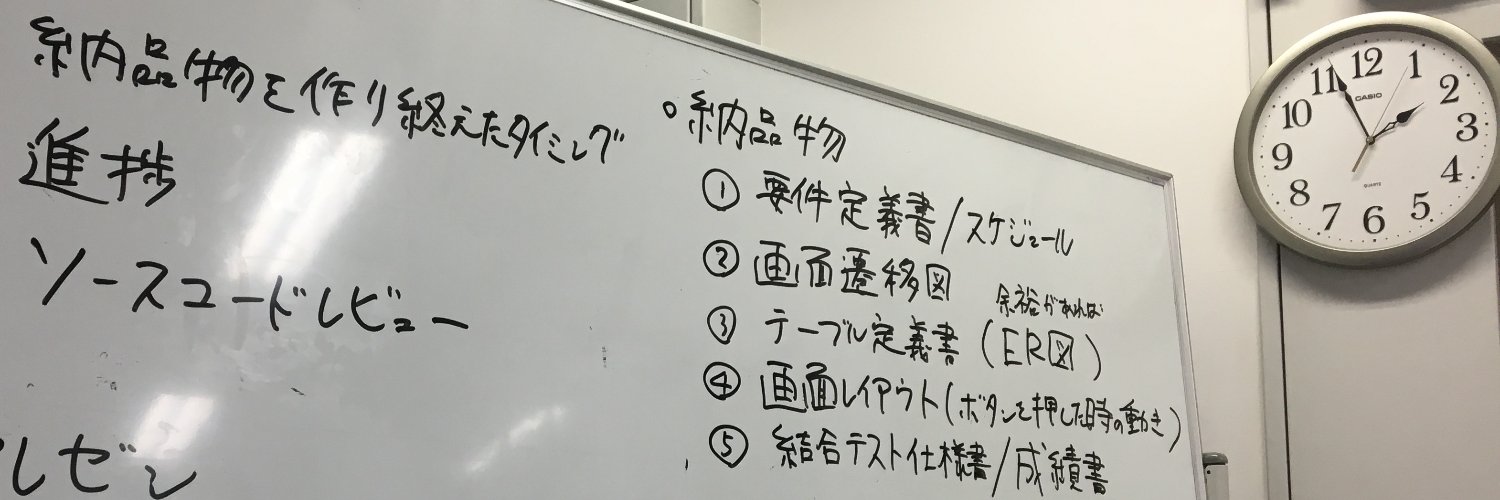 納品物を作り終えたタイミング
進捗
ソースコードレビュー
レゼン
○納品物
① 要件定義書/スケジュール
② 画面遷移図
余裕があれば
③ テーブル定義書(ER図)
④ 画面レイアウト(ボタンを押した時の動き)
⑤ 結合テスト仕様書/成績書
12
1
2
3
4
5
6
7
8
9
10
11
CASIO
QUARTZ